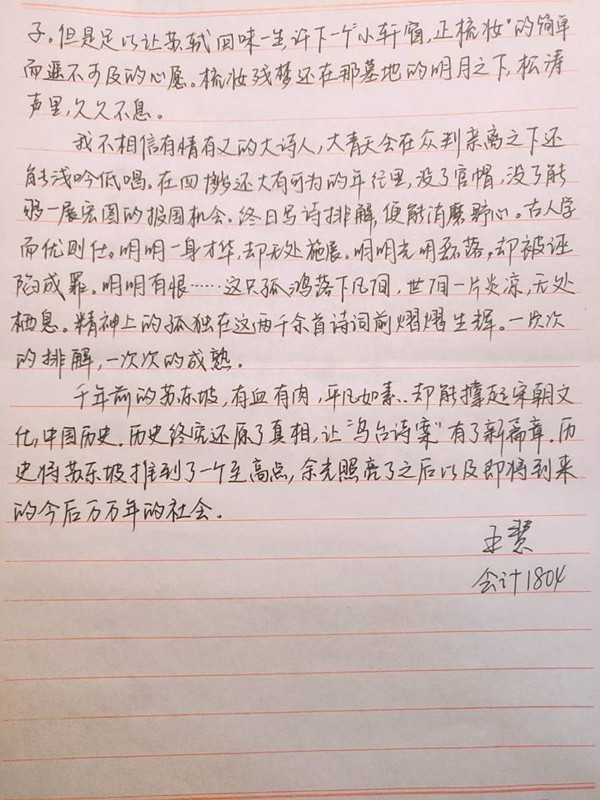 子。但是足以让苏轼回味一生,许下一个“小轩窗,正梳妆”的简单
而遥不可及的心愿。梳妆残梦还在那墓地的明月之下,松涛
声里,久久不息。
我不相信有情有义的大诗人,大青天会在众判亲离之下还
能浅吟低唱。在四十多岁还大有可为的年纪里,没了官帽,没了能
够一展宏图的报国机会。终日写诗排解,便能消磨野心。古人学
而优则仕。明明一身才华,却无处施展。明明光明磊落,却被诬
陷成罪。明明有恨……这只孤鸿落下凡间,世间一片炎凉,无处
栖息。精神上的孤独在这两千余首诗词前熠熠生辉。一次次
的排解,一次次的成熟。
千年前的苏东坡,有血有肉,平凡如素..却能撑起宋朝文
化,中国历史.历史终究还原了真相,让“乌台诗案”有了新篇章.历
史将苏东坡推到了一个至高点,余光照亮了之后以及即将到来
的今后万万年的社会.
王慧
会计1804